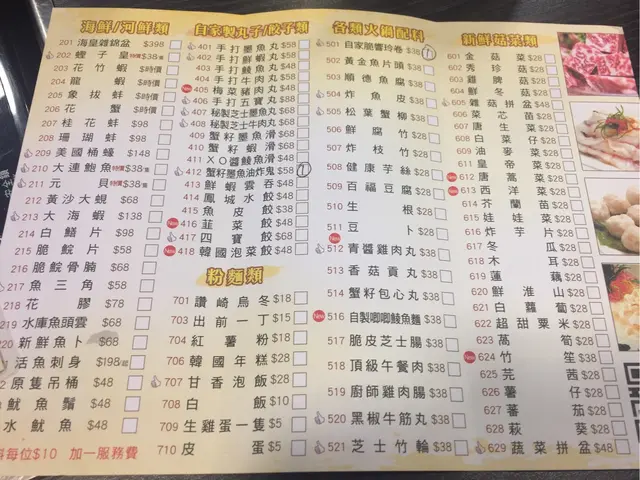 海鮮/河鮮類
201 海皇雜錦盆 $398
202 蟶子皇 特價$38/隻
203 花竹蝦 $時價
204 龍蝦 $時價
205 象拔蚌 $時價
206 花蟹 $時價
207 桂花蚌 $98
208 珊瑚蚌 $98
209 美國桶蠔 $148
210 大連鮑魚 特價$38/隻
211 元貝 特價$38/隻
212 黃沙大蜆 $68
213 大海蝦 $138
214 白鱔片 $98
215 脆鯇片 $58
216 脆鯇骨腩 $68
217 魚三角 $58
218 花膠 $78
219 水庫魚頭雲 $68
220 新鮮魚卜 $68
活魚刺身 $198/起
原隻吊桶 $48
魷魚鬚 $48
水魷魚 $48
每位$10 加一服務費
自家製丸子/餃子類
401 手打墨魚丸 $58
402 手打鮮蝦丸 $58
403 手打鯪魚丸 $58
404 手打牛肉丸 $58
New 405 梅菜豬肉丸 $48
406 手打五寶丸 $88
407 秘製芝士墨魚丸 $68
408 秘製芝士牛肉丸 $68
409 蟹籽墨魚滑 $68
410 蟹籽蝦滑 $68
411 XO醬鯪魚滑 $48
412 蟹籽墨魚油炸鬼 $58 1
413 鮮蝦雲吞 $48
414 鳳城水餃 $48
415 魚皮餃 $38
New 416 韮菜餃 $48
417 四寶餃 $68
New 418 韓國泡菜餃 $48
粉麵類
701 讚崎烏冬 $18
703 出前一丁 $15
704 紅薯粉 $18
706 韓國年糕 $28
707 甘香泡飯 $28
708 白飯 $10
709 生雞蛋一隻 $5
710 皮蛋 $5
各類火鍋配料
501 自家脆響玲卷 $38 1
502 黃金魚片頭 $38
503 順德魚腐 $38
504 炸魚皮 $38
505 松葉蟹柳 $38
506 鮮腐竹 $38
507 炸枝竹 $38
508 健康芋絲 $38
509 百福豆腐 $38
510 生根 $38
511 豆卜 $38
512 青醬雞肉丸 $38
513 香菇貢丸 $38
514 蟹籽包心丸 $38
New 516 自製唧唧鯪魚麵 $38
517 脆皮芝士腸 $38
518 頂級午餐肉 $38
519 廚師雞肉腸 $38
520 黑椒牛筋丸 $38
521 芝士竹輪 $38
新鮮菇菜類
601 金菇菜 $28
602 秀珍菇 $28
603 鮮脾菇 $28
604 鮮冬菇 $28
605 雜菇拼盆 $48
606 菜芯苗 $28
607 唐生菜 $28
608 白菜仔 $28
609 油麥菜 $28
611 皇帝菜 $28
New 612 唐蒿菜 $28
New 613 西洋菜 $38
614 芥蘭苗 $28
615 娃娃菜 $28
616 炸芋片 $28
617 冬瓜 $28
618 木耳 $28
619 蓮藕 $28
620 鮮淮山 $28
621 白蘿蔔 $28
622 超甜粟米 $28
623 萵筍 $28
New 624 竹笙 $38
625 芫茜 $28
626 薯仔 $28
627 蕃茄 $28
628 萩葵 $28
629 蔬菜拼盆 $48